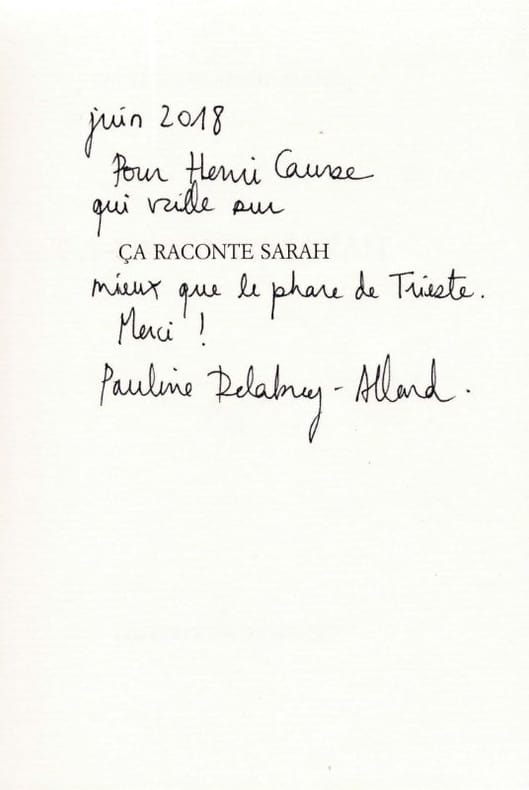 juin 2018
Pour Henri Causse
qui veille sur
ÇA RACONTE SARAH
mieux que le phare de Trieste.
Merci !
Pauline Delabroy-Allard.